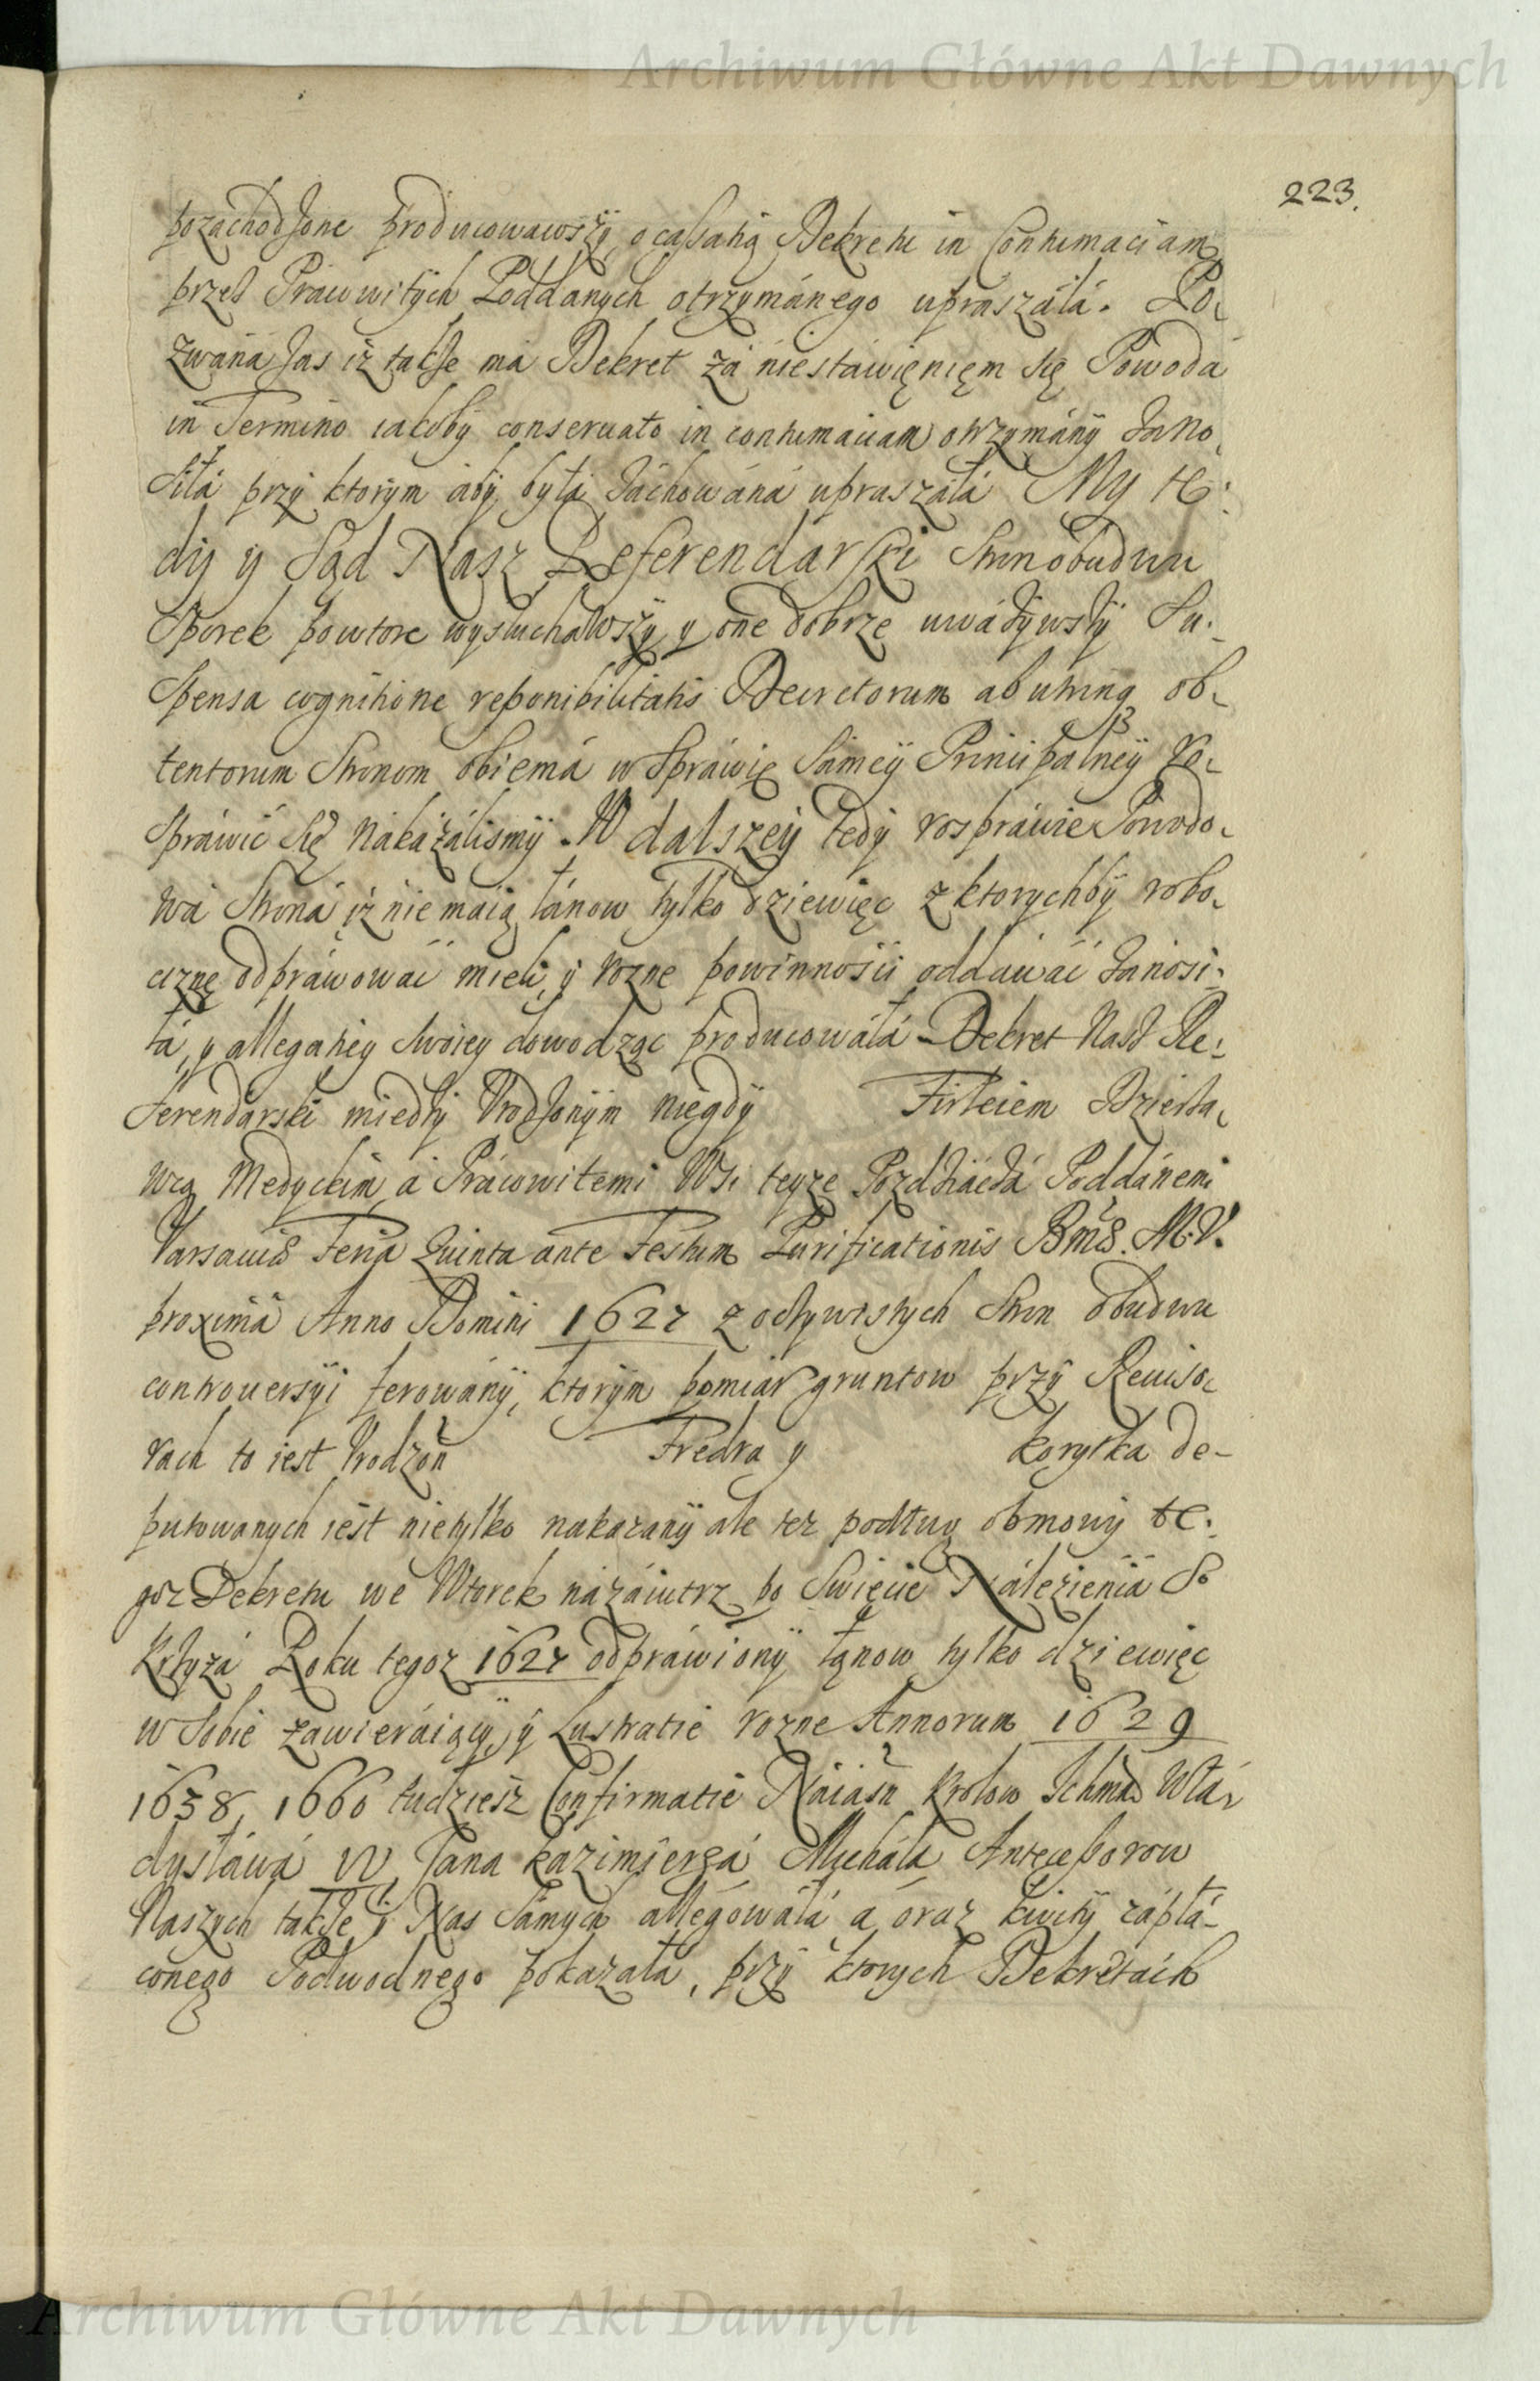 Archiwum Główne Akt Dawnych
223.
pozachodzone producowawszy, o cassatią Dekretu in Contumaciam
przez Pracowitych Poddanych otrzymánego upraszáłá. Po-
zwána zas iż także má Dekret zá niestáwięnięm się Powodá
in Termino iakoby conseruato in contumaciam otrzymány záno-
siłá przy ktorym áby byłá záchowáná upraszáłá My te-
dy y Sąd Nasz Referendárski Stron obudwu
Sporek powtore wysłuchawszy y one dobrze uwáżywszy Su-
spensa cognitione reponibilitatis Decretorum ab utrinq ob-
tentorum Stronom obiemá w Spráwię sámey Principálney ro-
spráwić się nákazálismy. W dalszey tedy rospráwie Powodo-
wá Stroná iż nie máią łánow tylko dziewięc z ktorychby robo-
ciznę odpráwowáć mieli, y rozne powinnosci oddáwáć zánosi-
łá, y allegatiey swoiey dowodząc producowáłá Dekret Nász Re-
ferendarski między Urodzonym niegdy Firleiem Dzierża-
wcą Medyckim á Prácowitemi Wsi teyze Pozdziáczá Poddánemi
Varsauiæ Feria Quinta ante Festum Purificationis Bmæ. M. V.
proximá Anno Domini 1627 z oczywistych Stron obudwu
controuersyi ferowány, ktorym pomiár gruntow przy Reuiso-
rach to iest Urodzon Fredrą y Korytką de-
putowanych iest nietylko nakazany ale tez podług obmowy te-
goz Dekretu we Wtorek názáiutrz po Swięcie Nálezienia S°
Krzyzá Roku tegoz 1627 odpráwiony łanow tylko dziewięc
w sobie záwieráiący, y Lustratie rozne Annorum 1629
1638, 1660 tudziesz Confirmatie Náiásn Krolow Ichmć Włá-
dysłáwá IV, Jana Kazimierzá, Micháłá, Antecessorow
Naszych także y Nas sámych allegowáłá á oraz kwity zápłá-
conego Podwodnego pokazáłá, przy ktorych Dekretách
Archiwum Główne Akt Dawnych